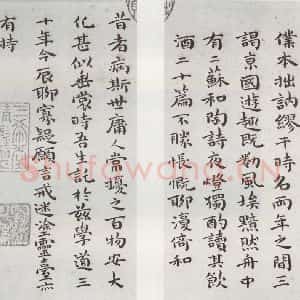 僕本拙訥繆干時名而年之間三
謁京國游趣既勌風埃黯然舟中
有二蘇和陶詩夜燈獨酌讀其飲
酒二十篇不勝悵慨聊復倚和
昔者病斯世庸人常擾之百物安大
化甚似無時吾生託於茲學道三
十年今辰聊寡疑願言戒迷塗靈臺亦
有時